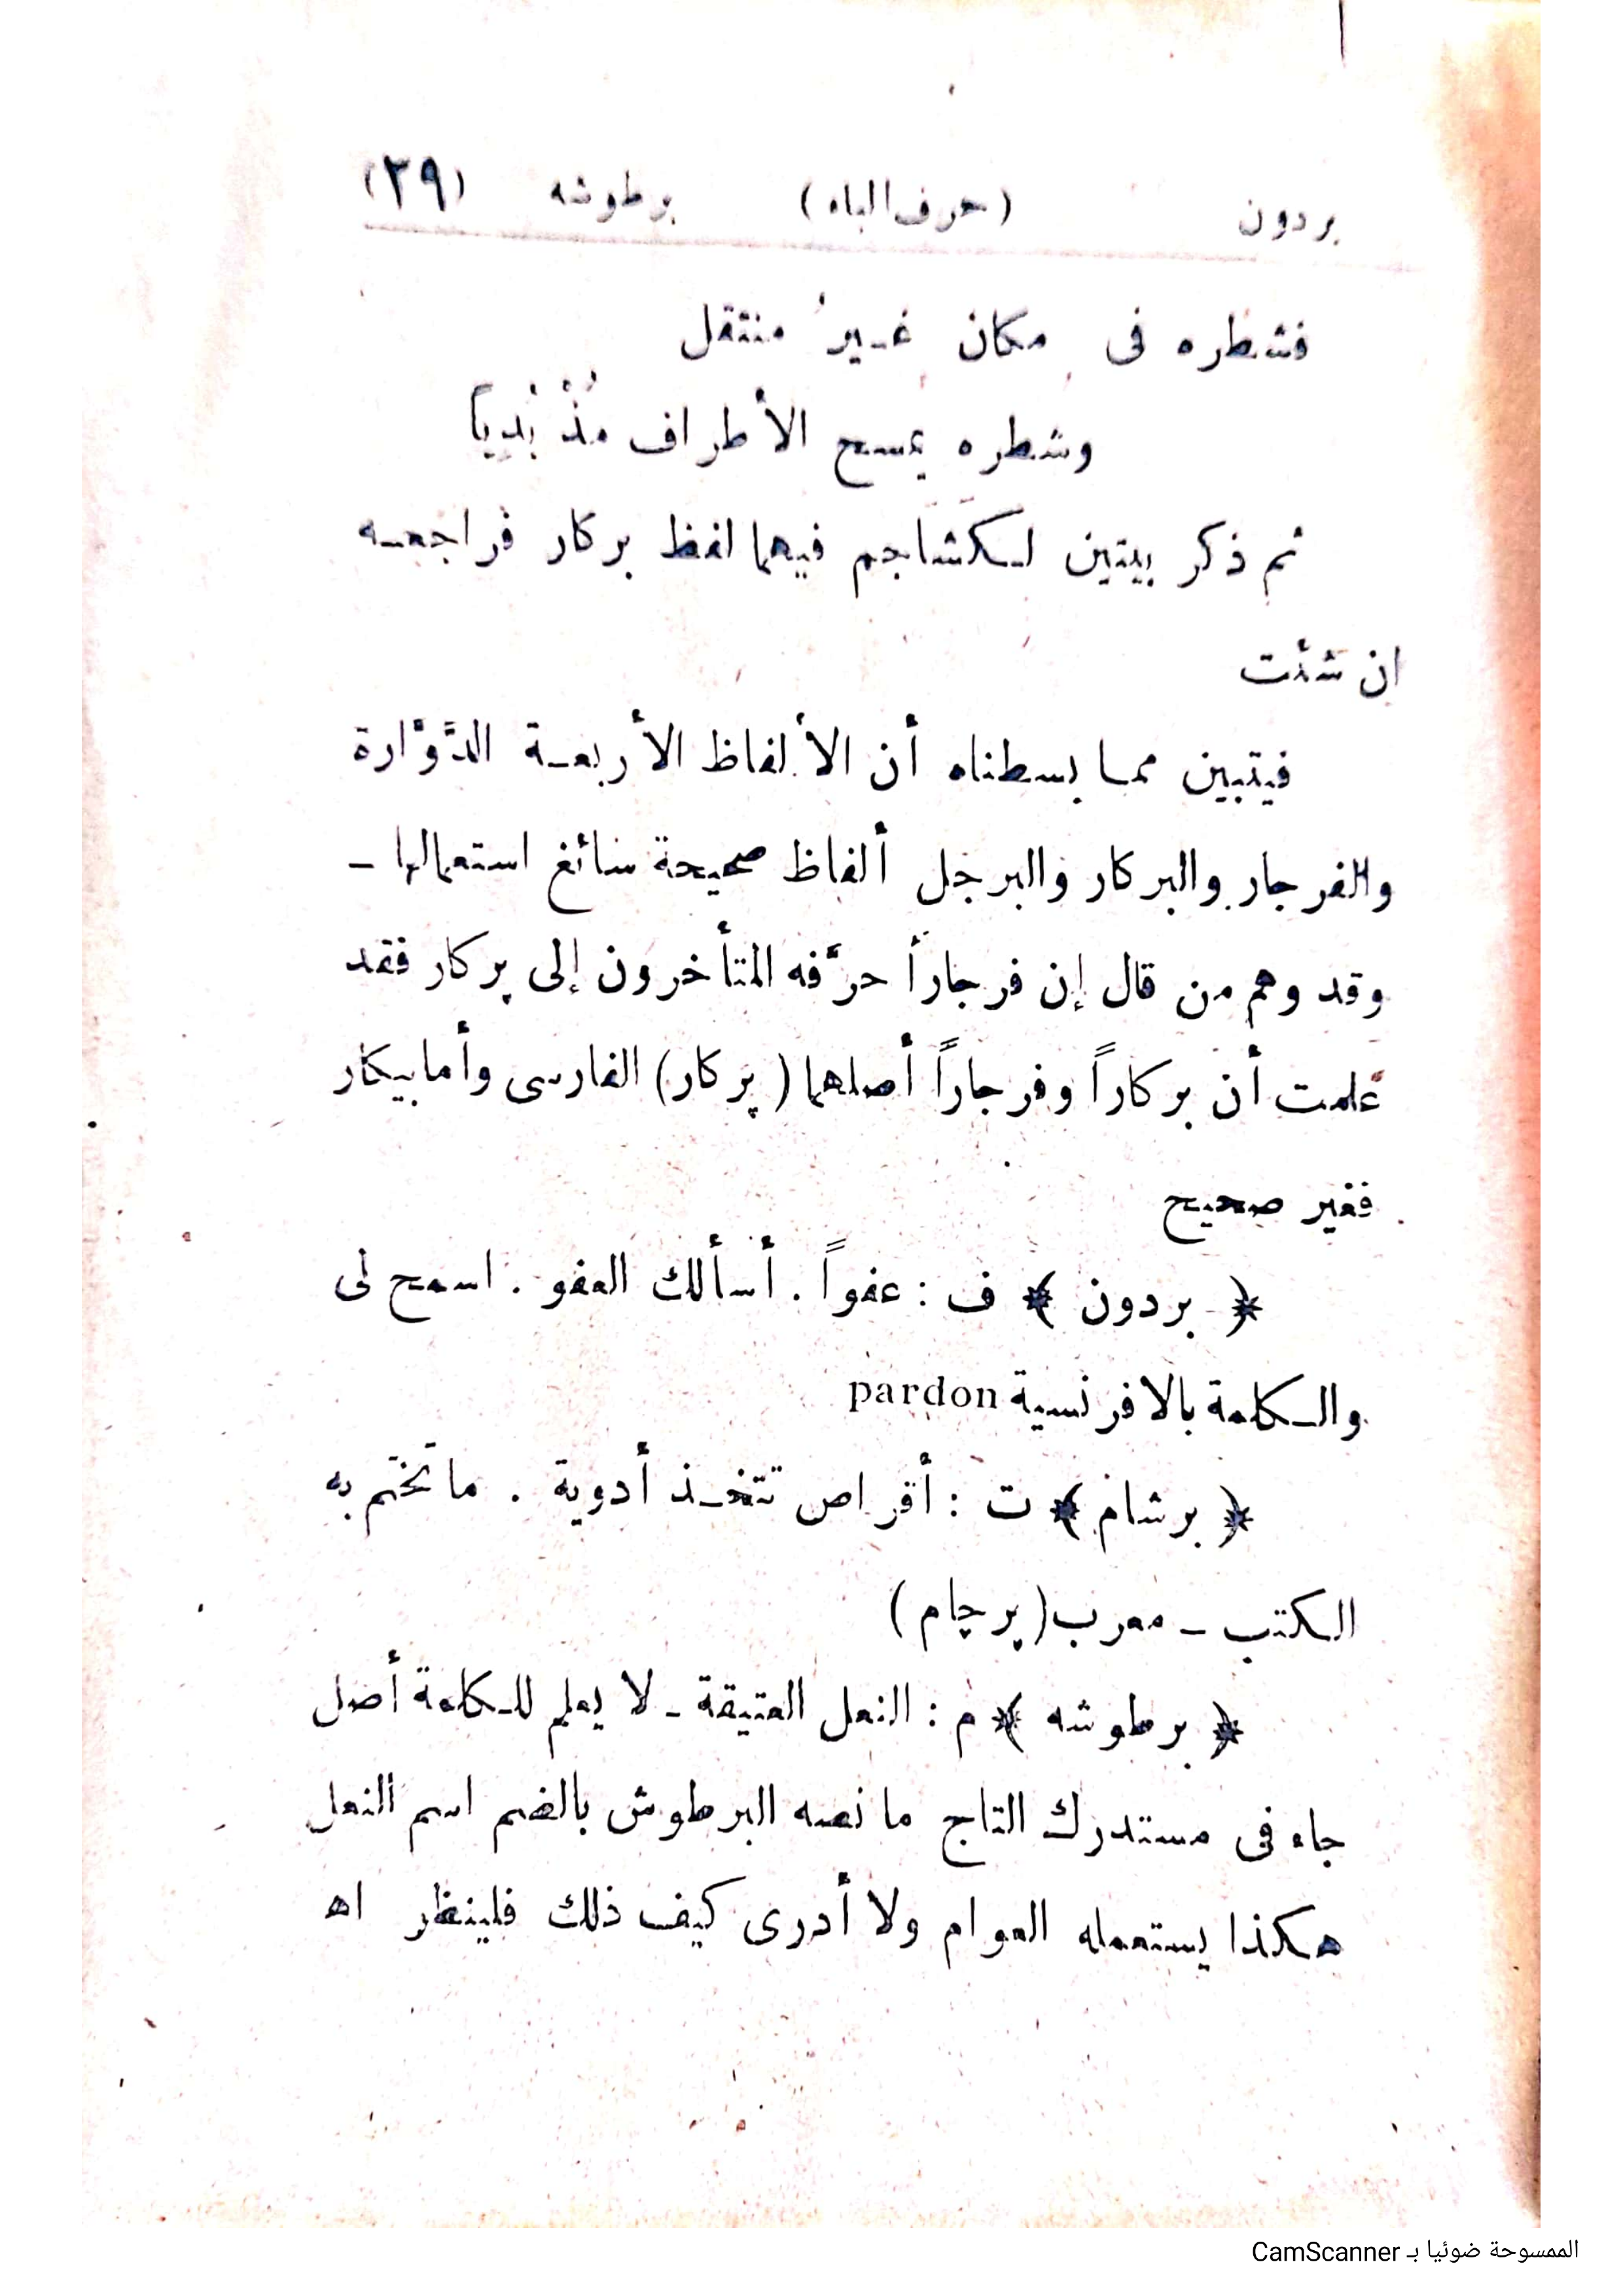 بردون (حرف الباء) برطوشه (٢٩)
فشطره فى مكان غير منتقل
وشطره يمسح الأطراف مُذْ بُدِيَا
ثم ذكر بيتين لكشاجم فيهما لفظ بركار فراجعه
ان شئت
فيتبين مما بسطناه أن الألفاظ الأربعة الدَّوَّارة
والفرجار والبركار والبرجل ألفاظ صحيحة سائغ استعمالها ـ
وقد وهم من قال إن فرجاراً حرَّفه المتأخرون إلى پركار فقد
علمت أن بركاراً وفرجاراً أصلهما (پركار) الفارسى وأما بيكار
فغير صحيح
﴿ بردون ﴾ ف : عفواً . أسألك العفو . اسمح لى
والكلمة بالافرنسية pardon
﴿ برشام ﴾ ت : أقراص تتخذ أدوية . ما تختم به
الكتب ـ معرب (پرچام)
﴿ برطوشه ﴾ م : النعل العتيقة ـ لا يعلم للكلمة أصل
جاء فى مستدرك التاج ما نصه البرطوش بالضم اسم النعل
هكذا يستعمله العوام ولا أدرى كيف ذلك فلينظر اهـ
الممسوحة ضوئيا بـ CamScanner